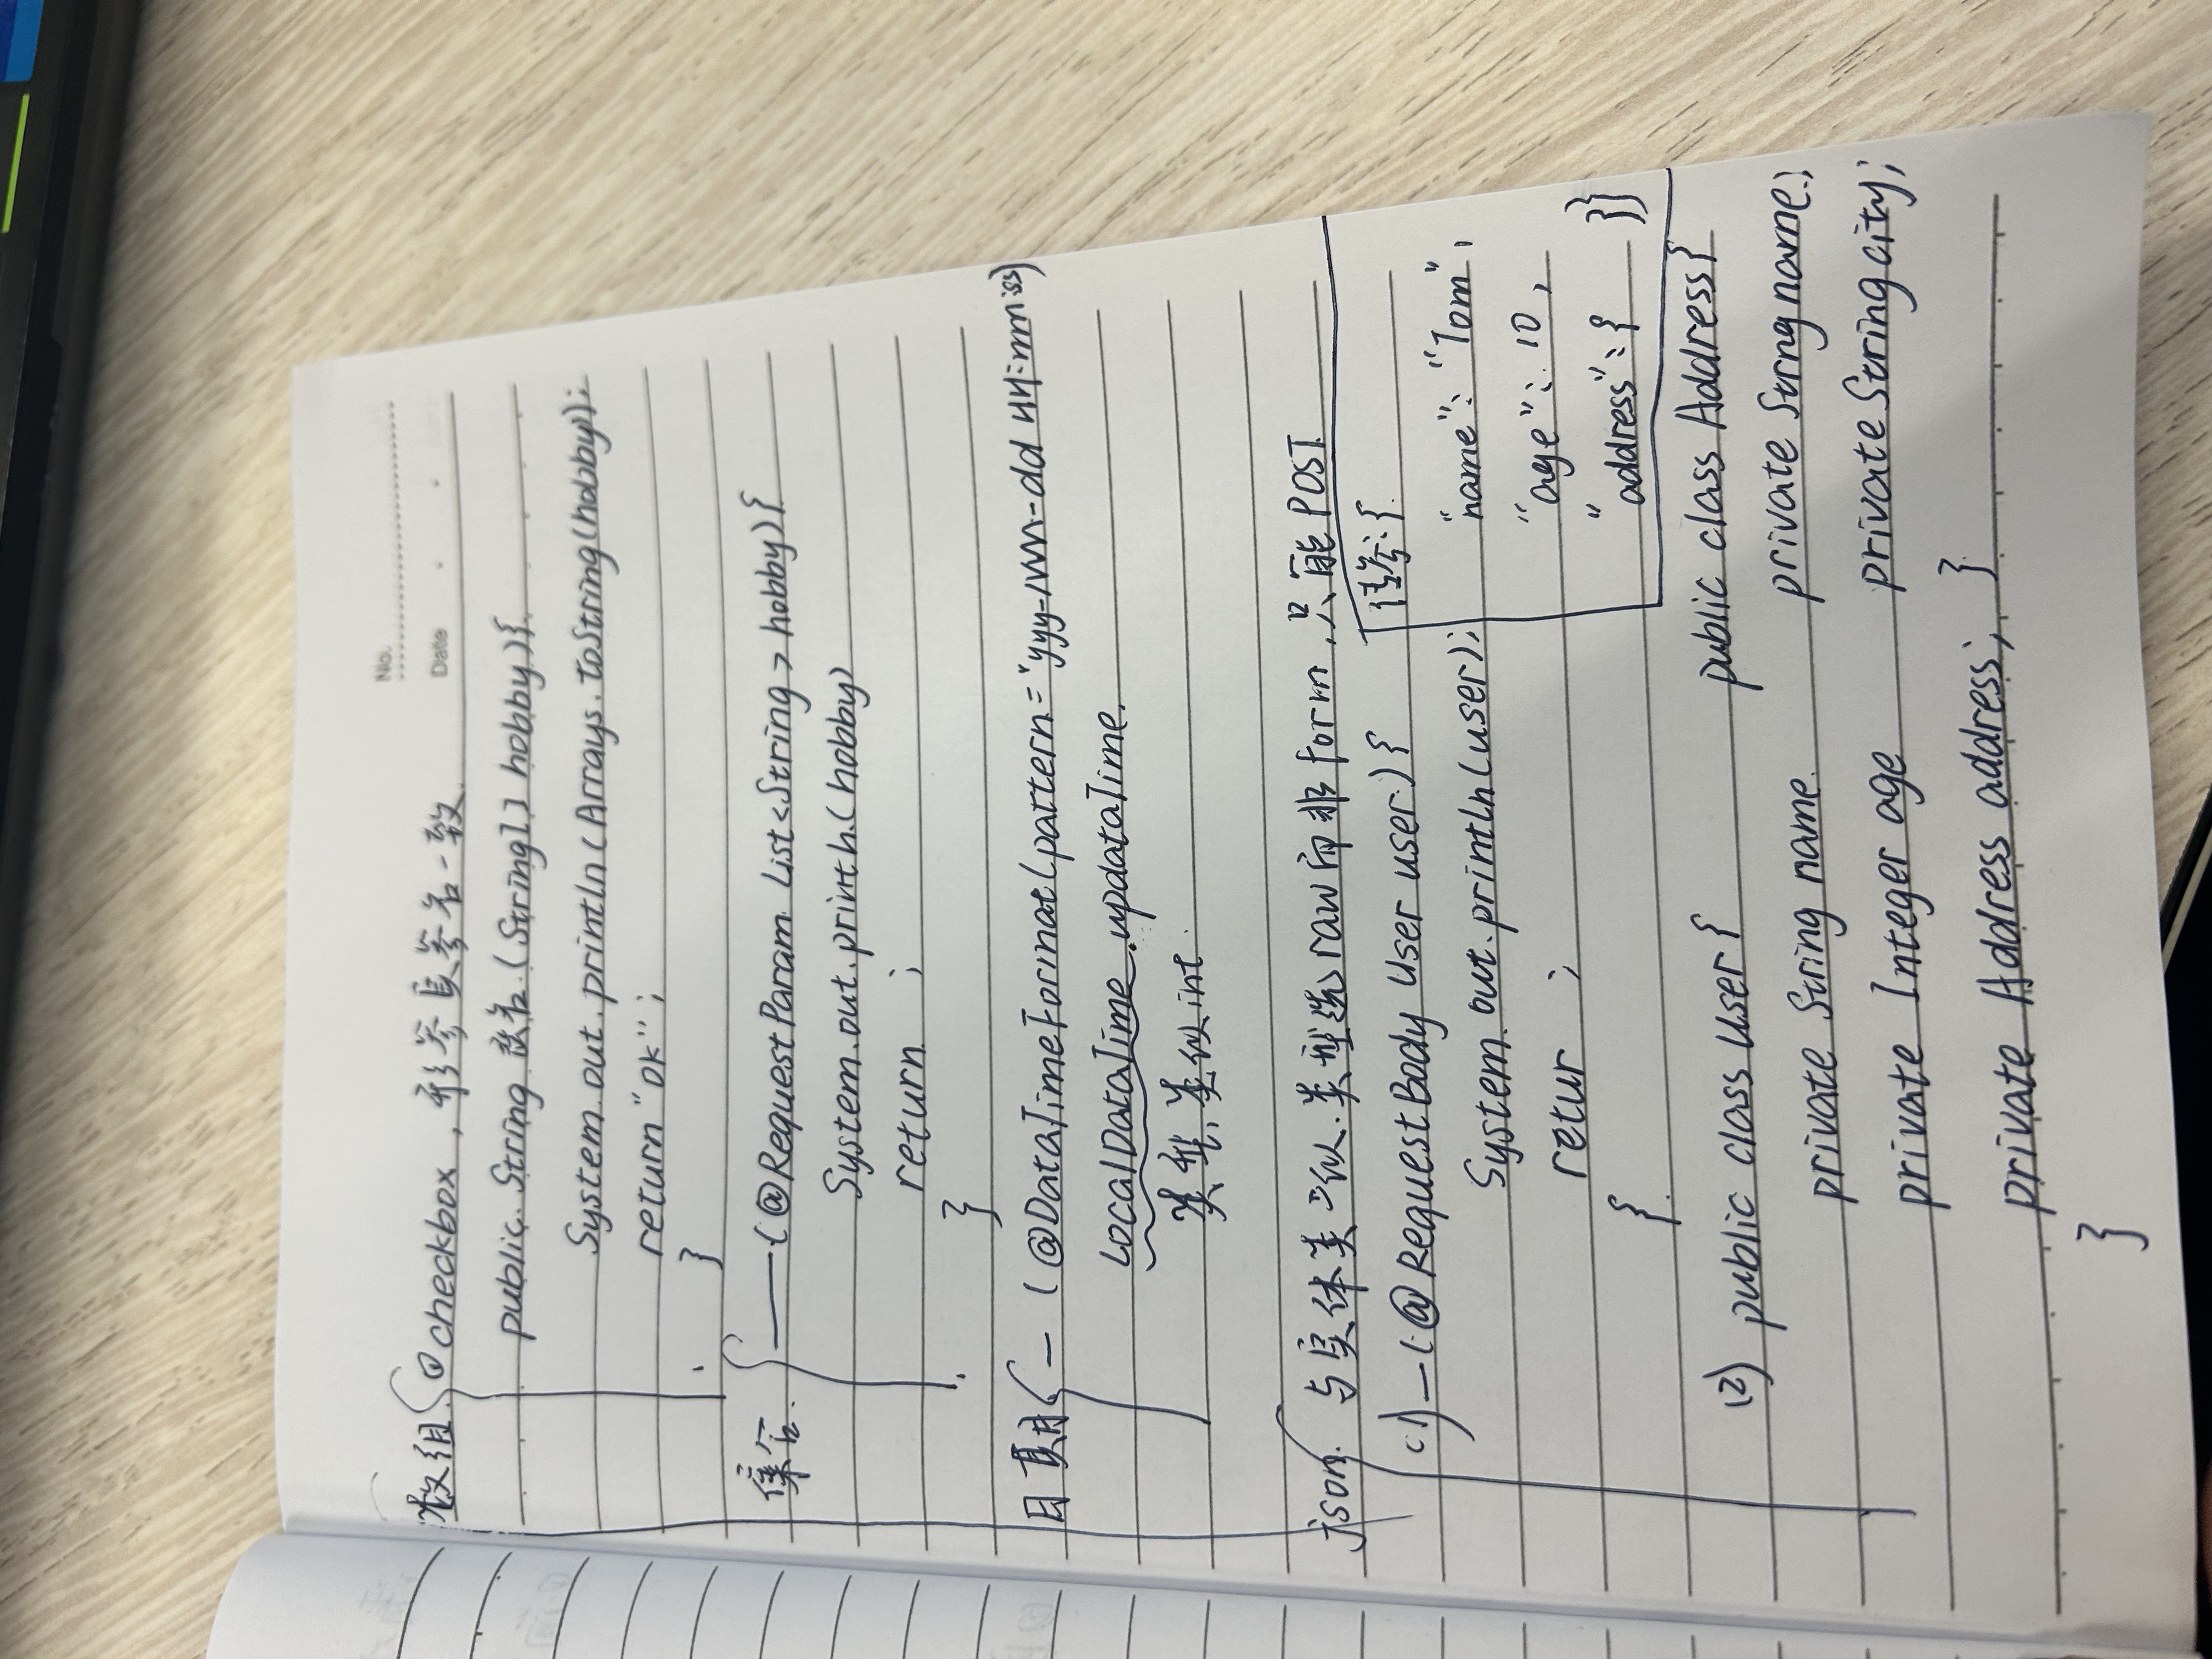 No.
Date
数组 ① checkbox，形参与参名一致
public String 改名(String[] hobby){
System.out.println(Arrays.toString(hobby));
return "ok";
}
集合 —(@RequestParam List<String> hobby){
System.out.println(hobby)
return ;
}
日期 —(@DataTimeFormat(pattern="yyy-MM-dd HH:mm:ss)
LocalDataTime updataTime.
类型，类似int
json 与实体类似.类型选raw而非form，只能POST
(1)—(@RequestBody User user){
System.out.println(user);
retur ;
{
传参:{
"name": "Tom",
"age": 10,
"address":{ }}
(2) public class User{
private String name
private Integer age
private Address address;
}
public class Address{
private Strng name;
private String city;
}